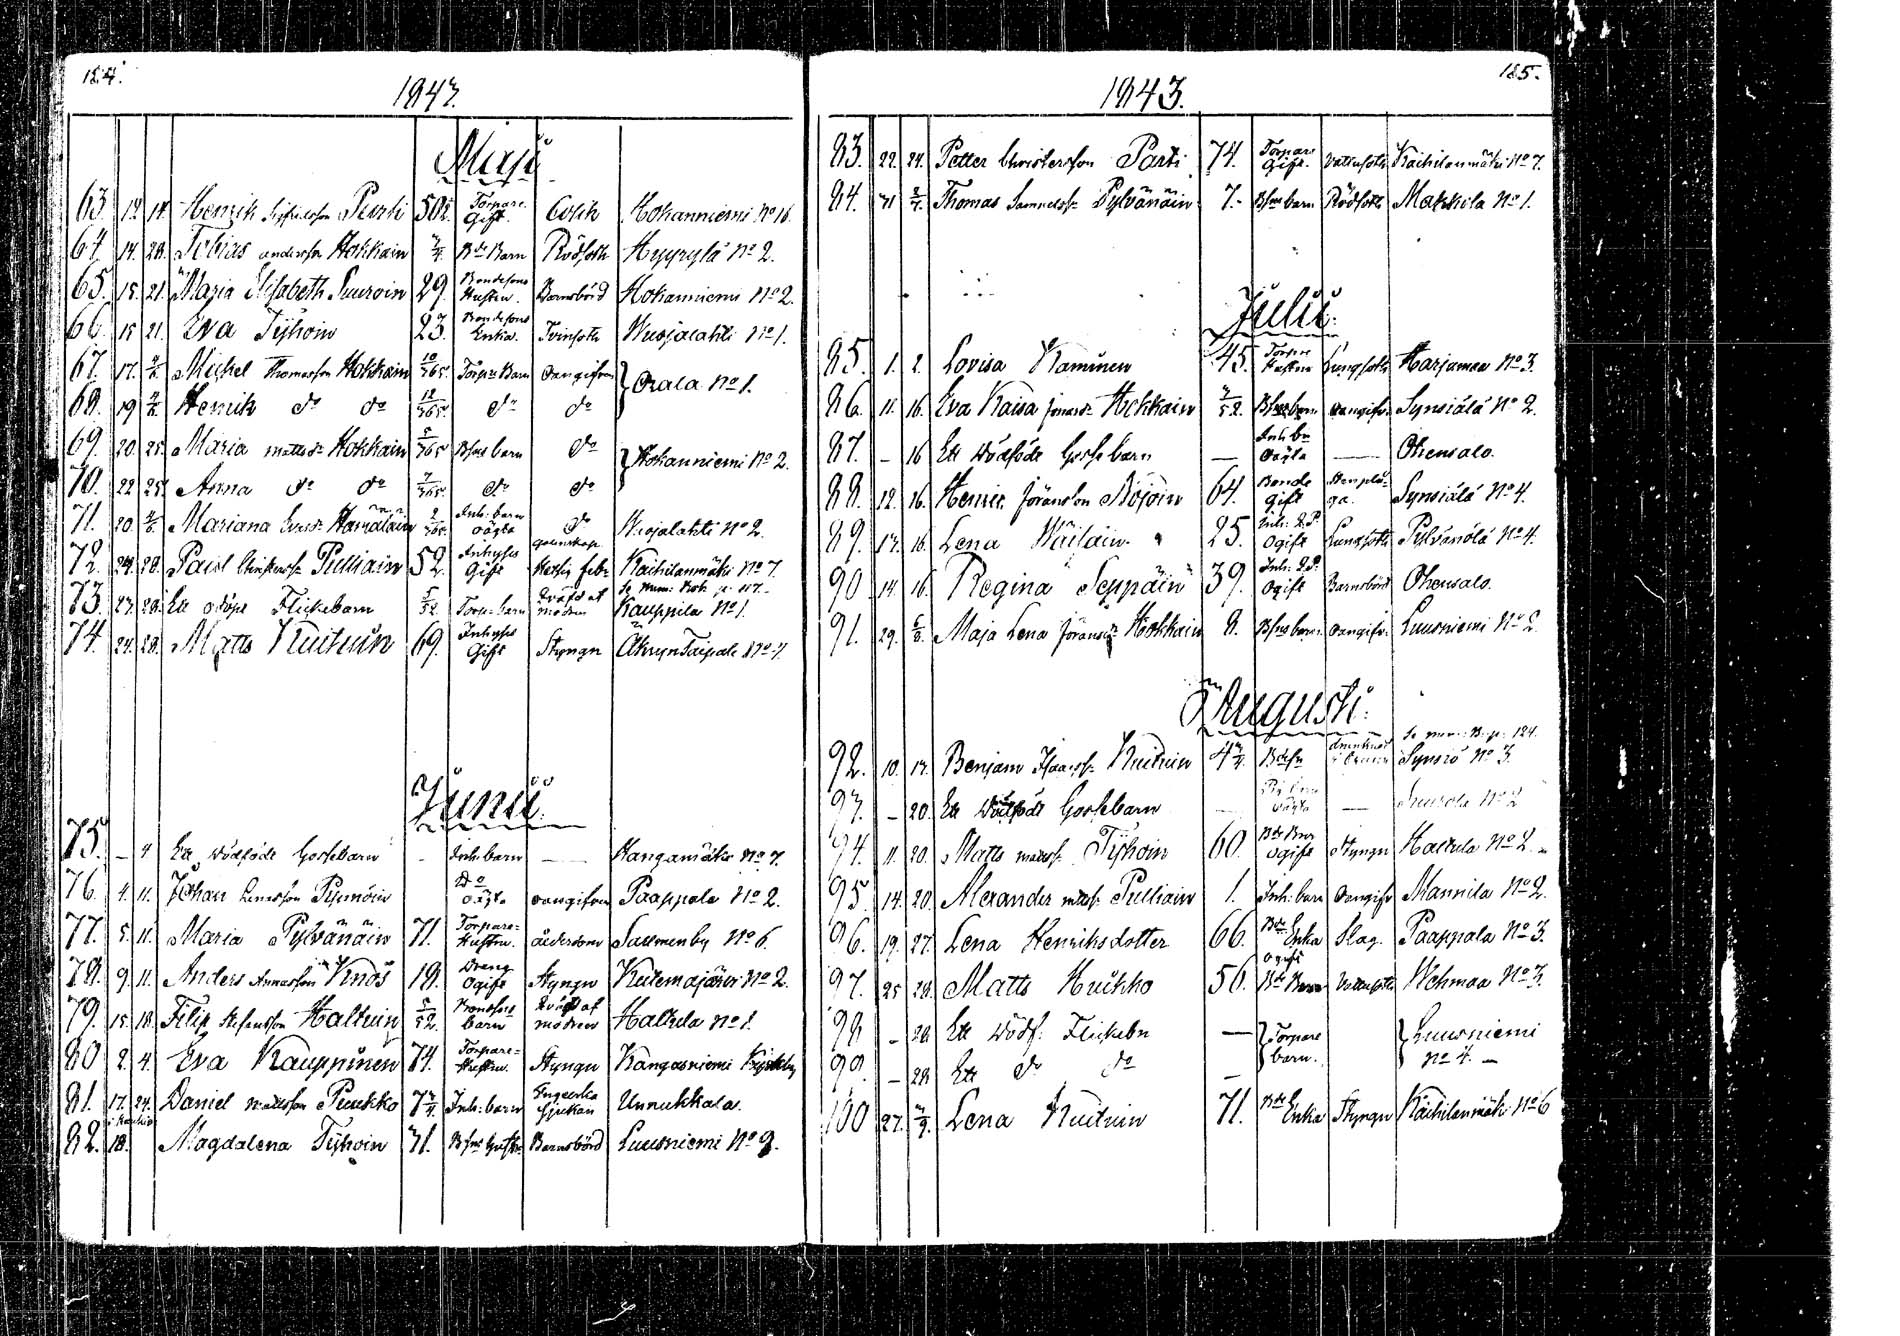 184.
1843.
Maji
63. 12. 14. Henrik Purti 50 Torpare Gift. Colik Hokanniemi No 16.
64. 14. 28. Tobias andersson Hokkain Bde Barn Rödsoth Hyyrylä No 2.
65. 15. 21. Maria Elisabeth Suuroin 29. Bondesons Hustru. Barnsbörd Hokanniemi No 2.
66. 15 21. Eva Tyhoin 23. Bondesons Enka. Tvinsoth Wuojalahti No 1.
67. 17. 4/6. Michel Thomasson Hokkain 10/365. Torpre Barn Oangifven Orala No 1.
68. 19 4/6. Henrik do do 12/365. do do
69. 20. 25. Maria mattsdr Hokkain 5/365 Bfns barn do Hokanniemi No 2.
70. 22 25. Anna do do 7/365. do do
71. 20 4/6. Mariana Hämäläin 2/365. Inh. barn oägta do Wuojalahti No 2.
72. 24. 28. Paul Pulliain 52. Inhyses Gift Hetsig feb. Kaihilanmäki No 7.
73. 27. 28. Ett odöpt Flickebarn 5/52 Torp. barn Qväfd af modren Kauppila No 1.
74. 24. 28. Matts Kuituin 69. Inhyses Gift Styngn Akryn Taipale No 7.
Junii.
75. – 4 Ett dödföde Gossebarn - Inh. barn — Kangamäki No 7.
76. 4. 11. Johan Do oägta oangifven Paappala No 2.
77. 5. 11. Maria Pylvänäin 71. Torpare- Hustru. ålderdom Salmenby No 6.
78. 9. 11. Anders Annasson Knos 18. Dreng Ogift Styngn Kutemajärvi No 2.
79. 15. 18. Filip Stefansson Haltuin 5/52. Bondsons barn Qväfd af modren Halkula No 1.
80 2. 4. Eva Kauppinen 74. Torpare- Hustru. Styngn Kangasniemi Kyrkby
81. 17. 24. Daniel mattsson Puukko 7 Inh. barn Engelska Sjukan Unnukkala.
82. 18. Magdalena Tyhoin 71. Bfns hustr. Barnsbörd Luusniemi No 2.
185.
1843.
83. 22. 24. Petter Christersson Parti 74. Torpare Gift. Vattusoth Kaihilanmäki No 7.
84. 21 2/7. Thomas Samuelss. Pylvänäin 7.- Bfns barn Rödsoth Makkila No 1.
Julii.
85. 1. 2. Lovisa Kaminen 45. Torpre Hustru Lungsoth Harjumaa No 3.
86. 11. 16. Eva Kaisa Hokkain 7/52. Bfns barn oangifv. Synsiälä No 2.
87. – 16 Ett dödföde Gossebarn — Inh. bn Oägta — Ohensalo.
88. 12. 16. Henric Jöransson Böjöin 64. Bonde Gift Stenplå- ga. Synsiälä No 4.
89. 13. 16. Lena Wäilain. 25. Inh. D.P. Ogift Lungsoth Pylvänälä No 4.
90 14. 16. Regina Seppäin 39. Inh. D.P. Ogift Barnsbörd Ohensalo.
91. 29. 6/8. Maja Lena Jöransdr Hokkain 8. Bfns barn. oangifv. Luusniemi No 2.
Augusti.
92. 10. 13. Benjam Isaacss. Kuituin 4 Bdesn Synsiö No 3.
93. – 20. Ett dödföde Gossebarn — oägta — No 2
94. 11. 20. Matts matss. Tyhoin 60. Bde Bror ogift Styngn Halkula No 2.
95. 14. 20. Alexander matss. Pulliain 1. Inh. barn Oangifv Mannila No 2.
96. 19. 27. Lena Henriksdotter 66. Bde Enka Slag. Paappala No 3.
97. 25 28. Matts Huikko 50. ogift Bde Bror Vattusoth Wehmaa No 3.
98 – 28. Ett dödf: Flickebn — Torpare barn. Luusniemi No 4. –
99. – 28 Ett do do –
100 27. 3/9. Lena Kuituin 71. Bde Enka Styngn Kaihilanmäki No 6